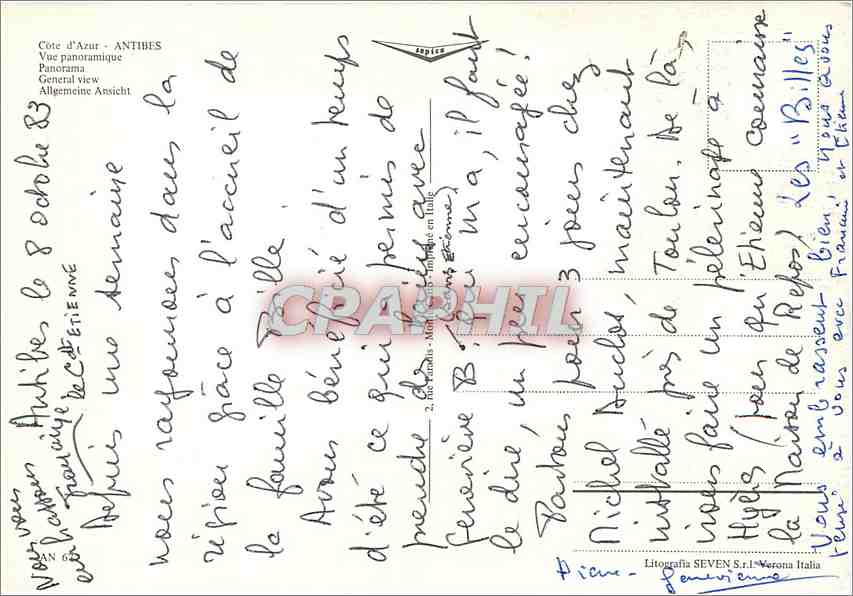 Côte d'Azur - ANTIBES
Vue panoramique
Panorama
General view
Allgemeine Ansicht
sapico
2, rue Paradis - Imprimé en Italie
Litografia SEVEN S.r.l. Verona Italia
CPAPHIL
Antibes le 8 octobre 83
Depuis une semaine
nous rayonnons dans la
région grâce à l'accueil de
la famille Bille.
Avons bénéficié d'un temps
d'été ce qui a permis de
prendre des bains avec
Geneviève B. qui m'a, il faut
(sans Etienne)
le dire, un peu encouragée!
Partons pour 3 jours chez
Michel Auclos, maintenant
installé près de Toulon. De là,
irons faire un pélerinage à
Hyères (pour qu'Etienne connaisse
la Maison de Repos)
Nous vous
embrassons
Françoise
le Cdt ETIENNE
Les "Billes"
Vous embrassent bien. Nous avons
pensé à vous avec Françoise et Etienne
Pierre - Geneviève